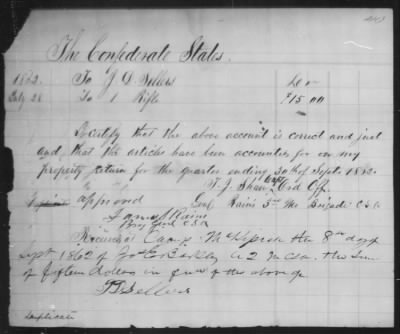 The Confederate States.
1862. To J D Sellers Dr
July 28 To 1 Rifle $15.00
I certify that the above account is correct and just
and that the articles have been accounted for on my
property return for the quarter ending 30th of Sept. 1862.
T. J. Shaw Ord Off.
approved Genl Rains 3rd Mo Brigade C S A
James S Rains
Brig Genl C S A
Received Camp the 8th day of
Sept 1862 of Jno E A 2 M CSA. the Sum
of fifteen Dollars in full of the above
J D Sellers
Duplicate